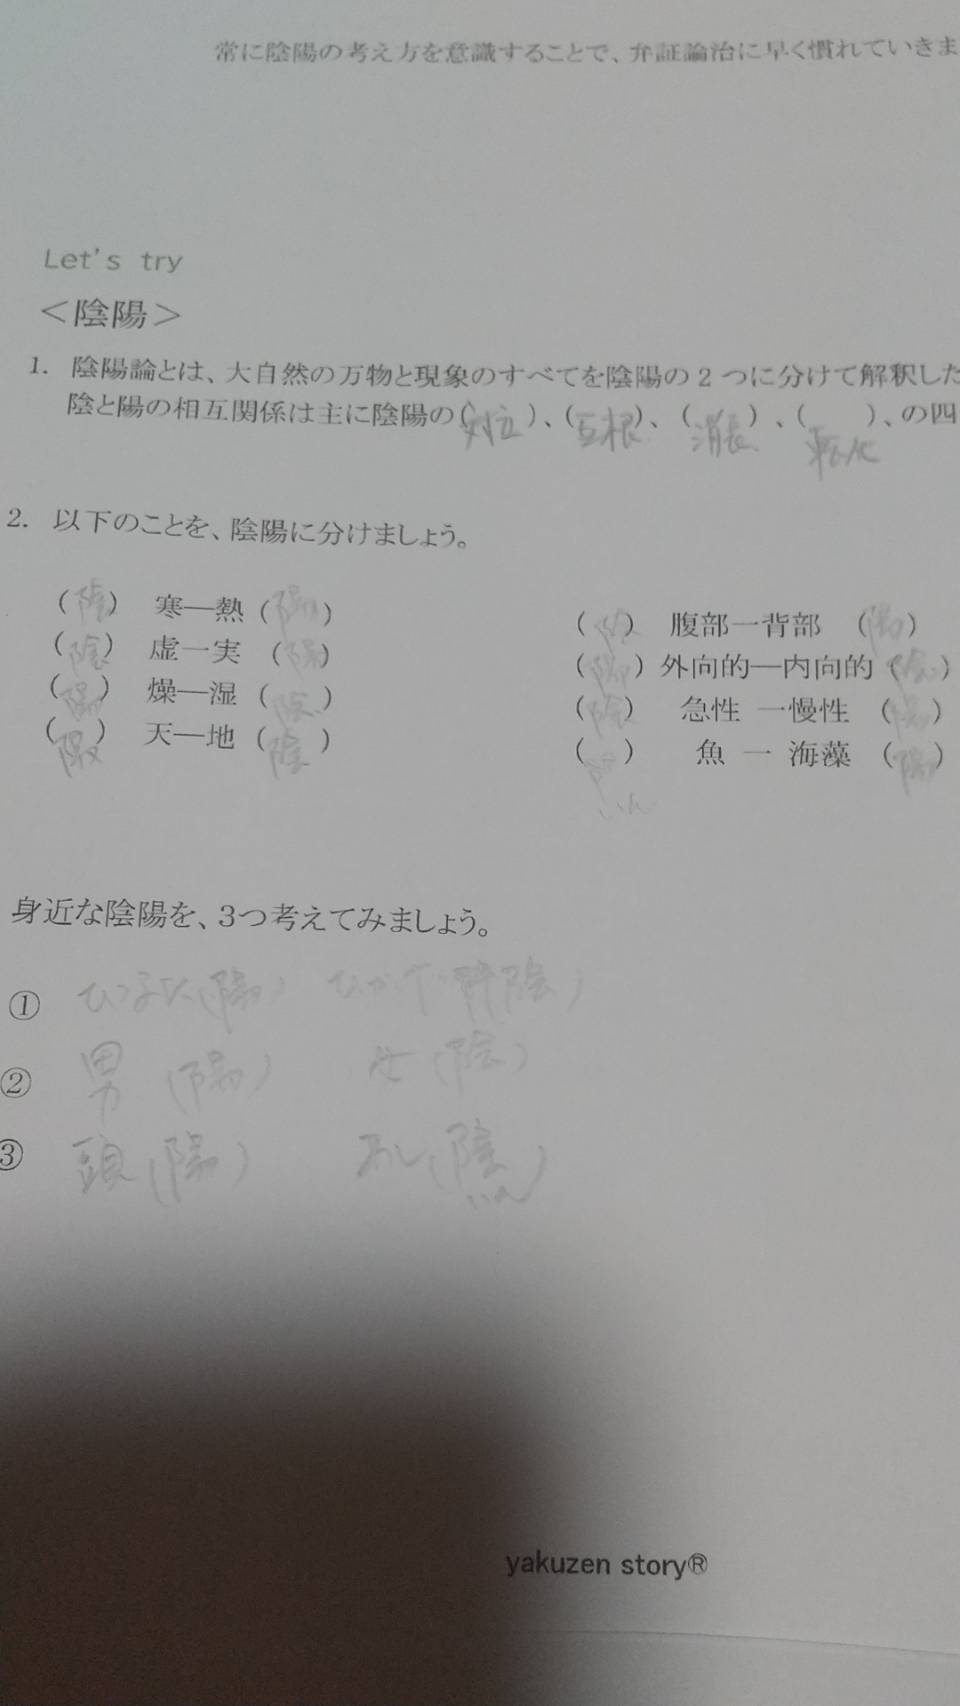 常に陰陽の考え方を意識することで、弁証論治に早く慣れていきま
Let's try
＜陰陽＞
1. 陰陽論とは、大自然の万物と現象のすべてを陰陽の２つに分けて解釈した
陰と陽の相互関係は主に陰陽の(対立)、(互根)、(消長)、(転化)、の四
2. 以下のことを、陰陽に分けましょう。
(陰) 寒―熱 (陽)
(陰) 虚―実 (陽)
(陽) 燥―湿 (陰)
(陽) 天―地 (陰)
(陰) 腹部―背部 (陽)
(陽) 外向的―内向的 (陰)
(陰) 急性 ―慢性 (陽)
(陰) 魚 ― 海藻 (陽)
いん
身近な陰陽を、3つ考えてみましょう。
① ひなた(陽) ひかげ(陰)
② 男 (陽) 女 (陰)
③ 頭 (陽) あし (陰)
いん
yakuzen story®